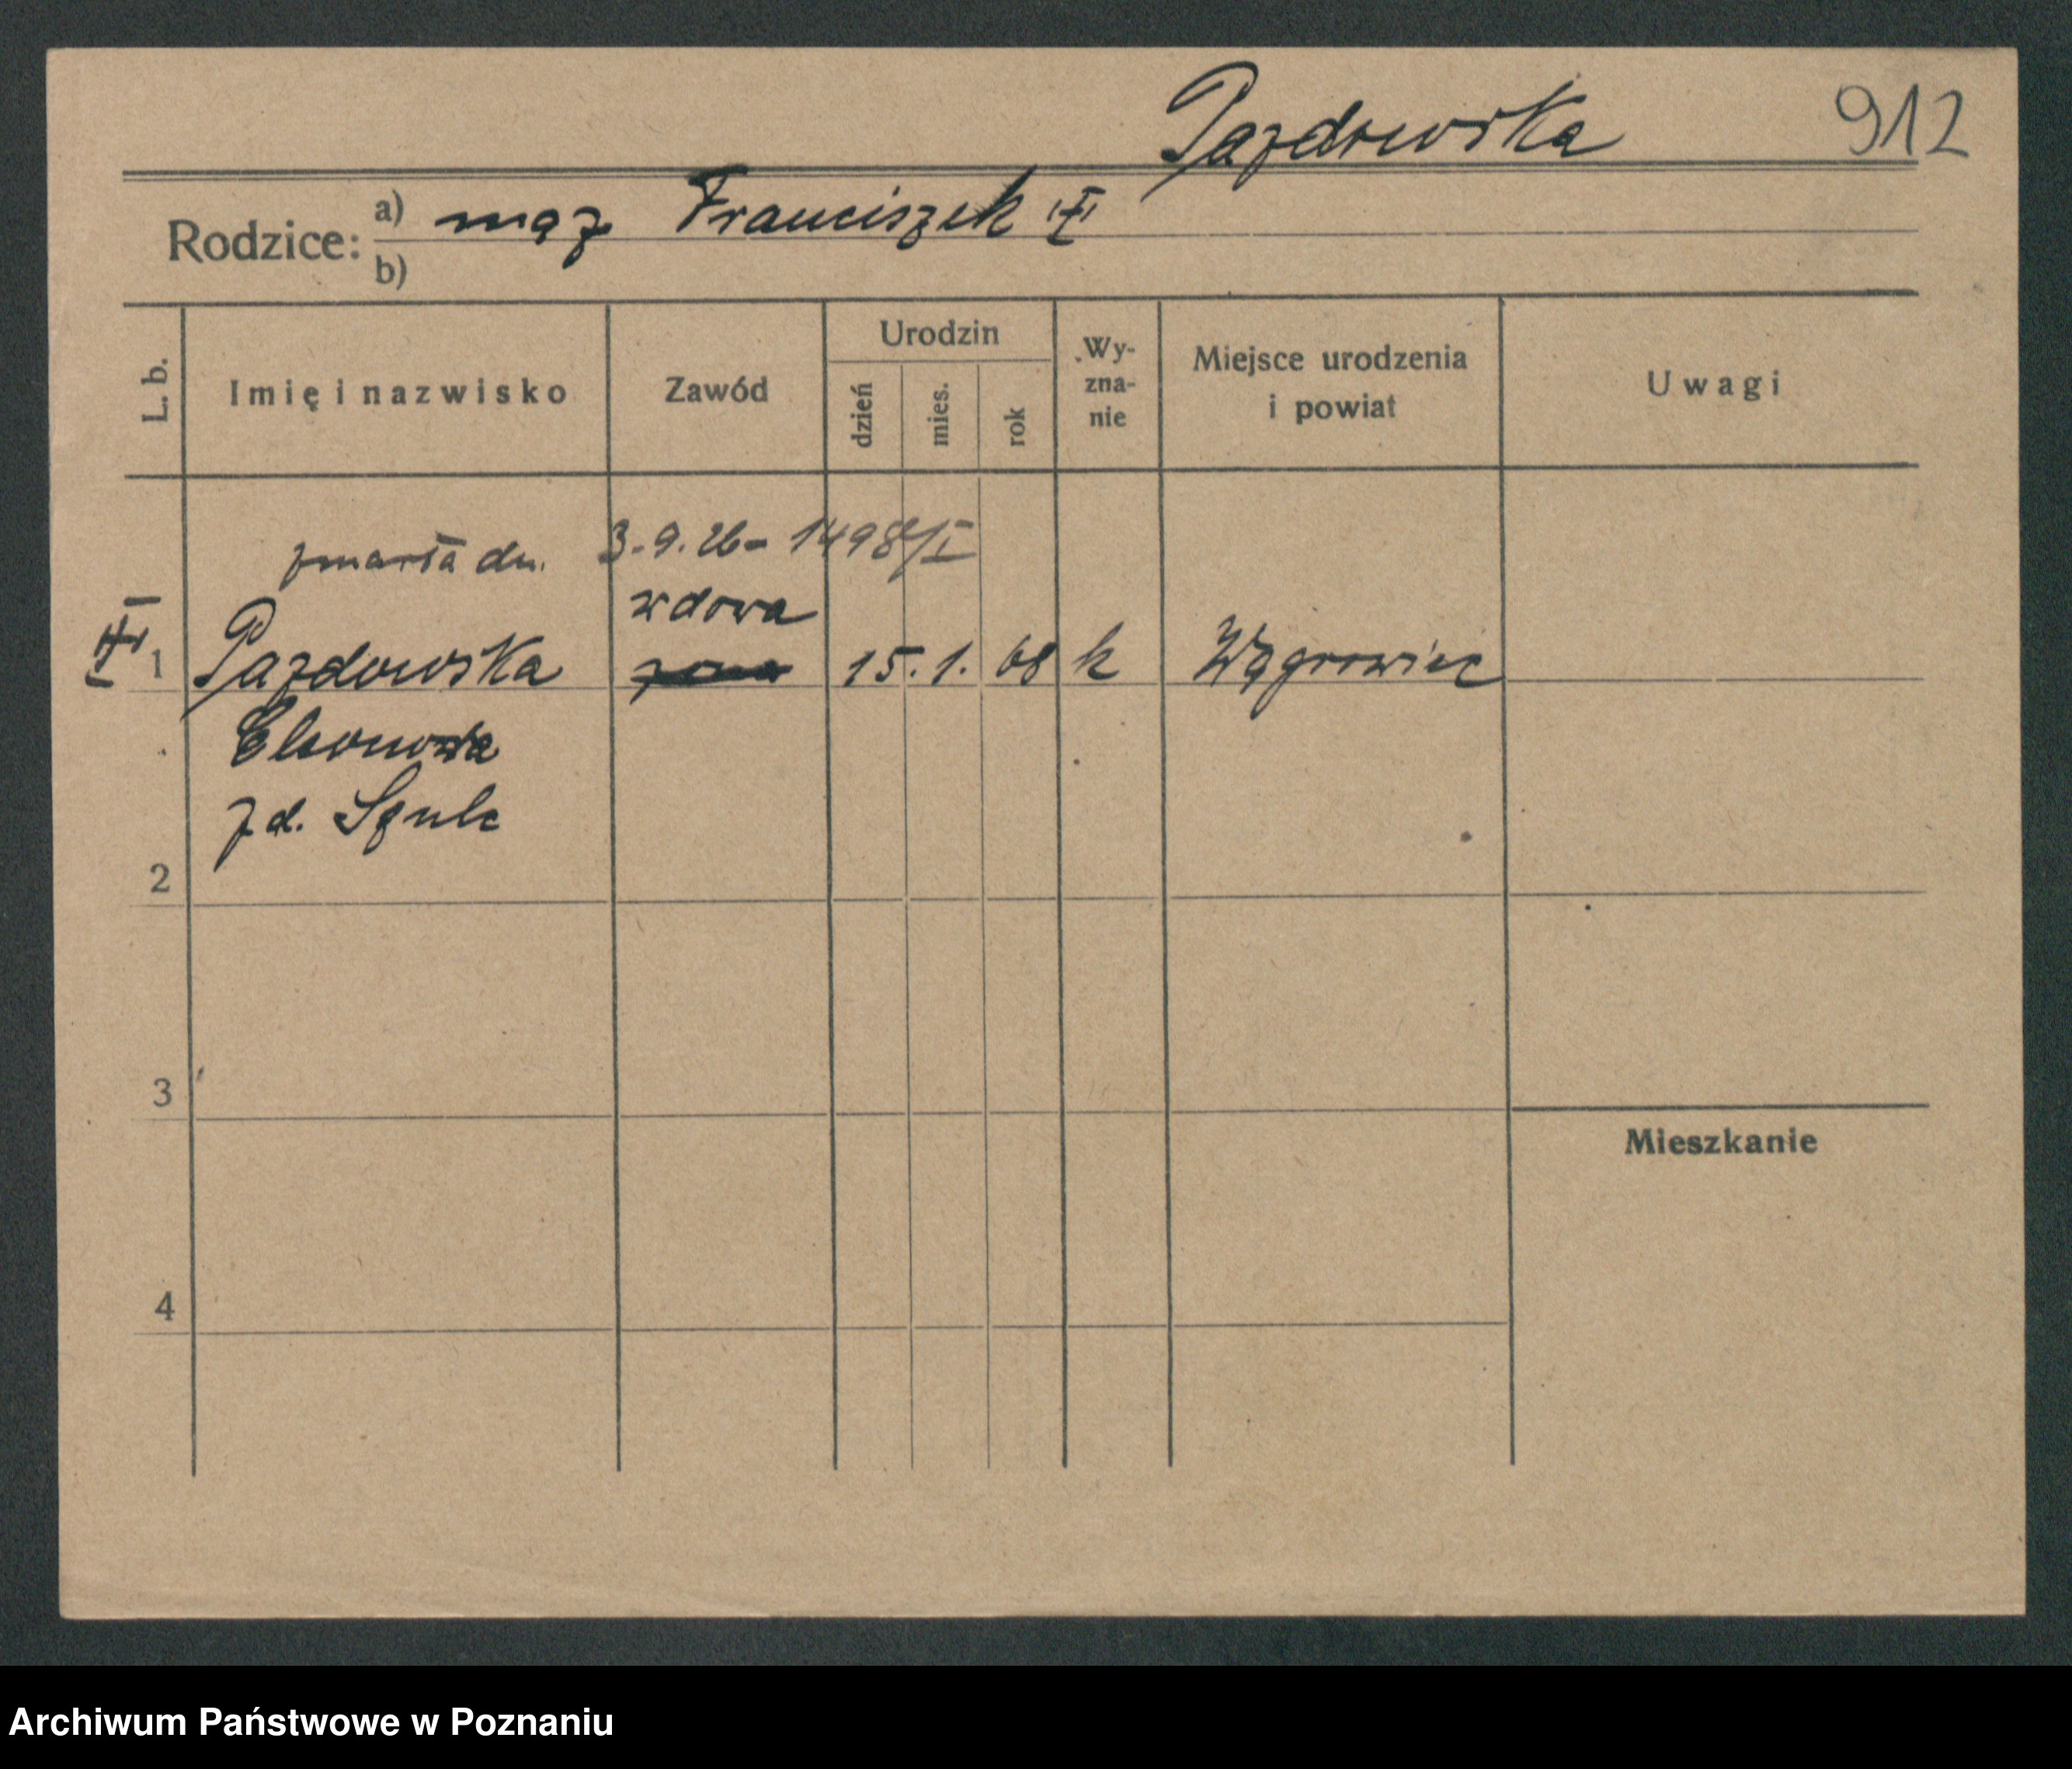 Pazdowska 912
Rodzice: a) mąż Franciszek
b)
L. b.
Imię i nazwisko
Zawód
Urodzin
dzień
mies.
rok
Wy-
zna-
nie
Miejsce urodzenia
i powiat
Uwagi
zmarła dn. 3.9.26 - 1498/I
wdowa
1 Pazdowska żona 15. 1. 68 k Wągrowiec
Eleonora
z d. Szulc
2
3
Mieszkanie
4
Archiwum Państwowe w Poznaniu